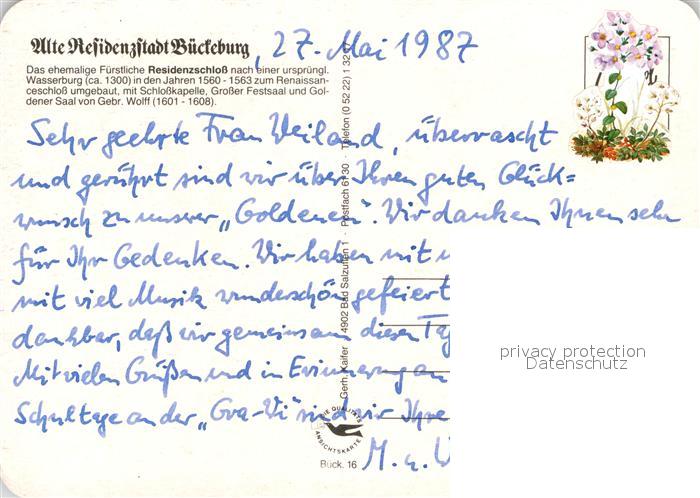 Alte Residenzstadt Bückeburg, 27. Mai 1987
Das ehemalige Fürstliche Residenzschloß nach einer ursprüngl.
Wasserburg (ca. 1300) in den Jahren 1560 - 1563 zum Renaissan-
ceschloß umgebaut, mit Schloßkapelle, Großer Festsaal und Gol-
dener Saal von Gebr. Wolff (1601 - 1608).
Sehr geehrte Frau Weiland, überrascht
und gerührt sind wir über Ihren guten Glück=
wunsch zu unserer „Goldenen". Wir danken Ihnen sehr
für Ihr Gedenken. Wir haben mit
mit viel Musik wunderschön gefeiert
dankbar, daß wir gemeinsam diesen Tag
Mit vielen Grüßen und in Erinnerung an
Schultage an der „Gra-Vi" sind wir Ihre
M. u. W
Gerh. Kaifer · 4902 Bad Salzuflen 1 · Postfach 6130 · Telefon (0 52 22) 1 32
DIE QUALITÄTS
ANSICHTSKARTE
Bück. 16
privacy protection
Datenschutz